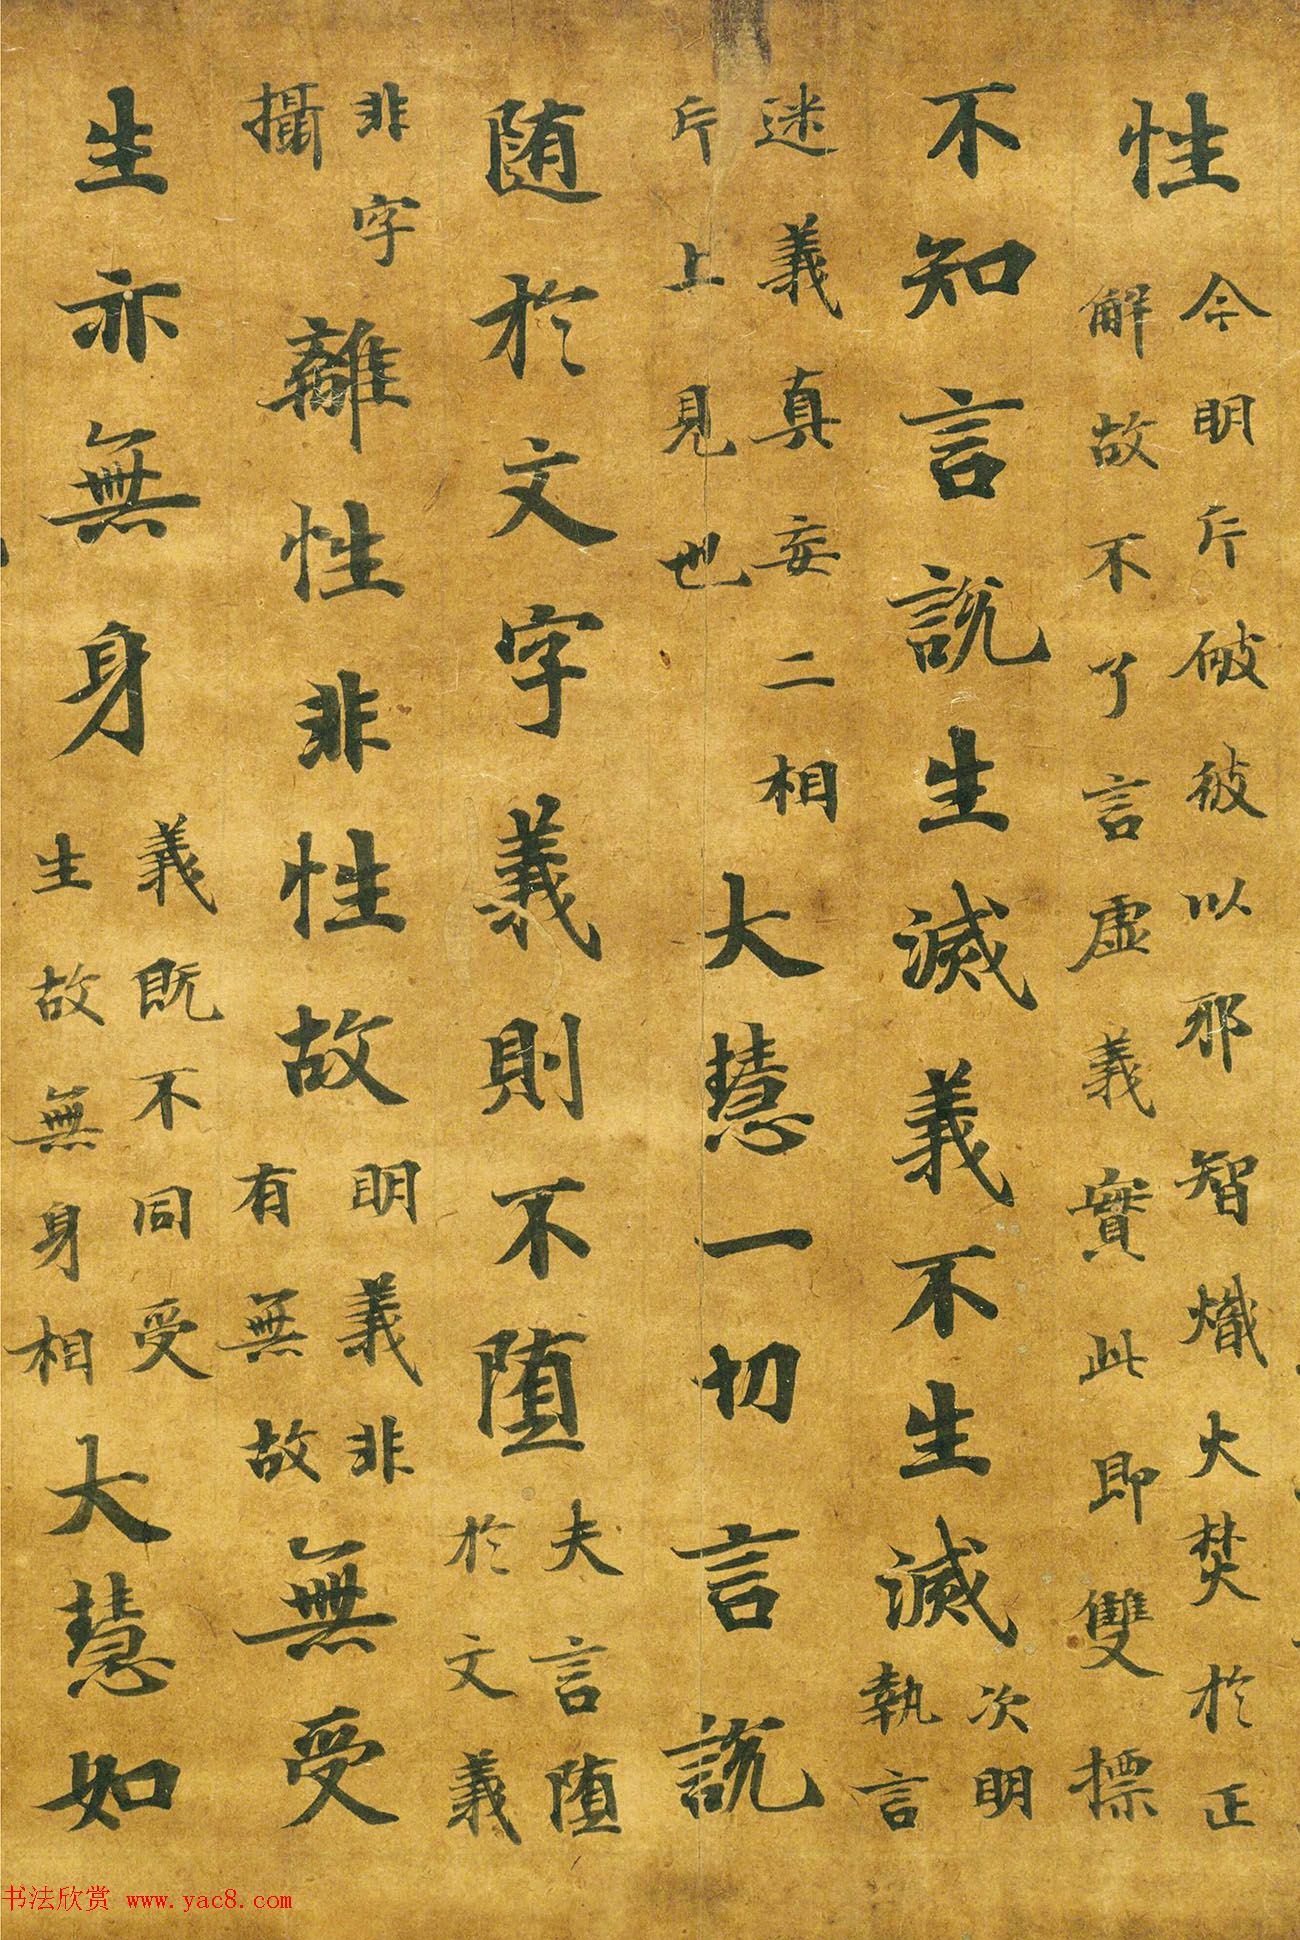 性
今明斥破彼以邪智熾火焚於正
解故不了言虛義實此即雙標
不知言說生滅義不生滅
次明
執言
迷義真妄二相
斥上見也
大慧一切言說
随於文字義則不墮
夫言墮
於文義
非字
攝
離性非性故
明義非
有無故
無受
生亦無身
義既不同受
生故無身相
大慧如
书法欣赏 www.yac8.com